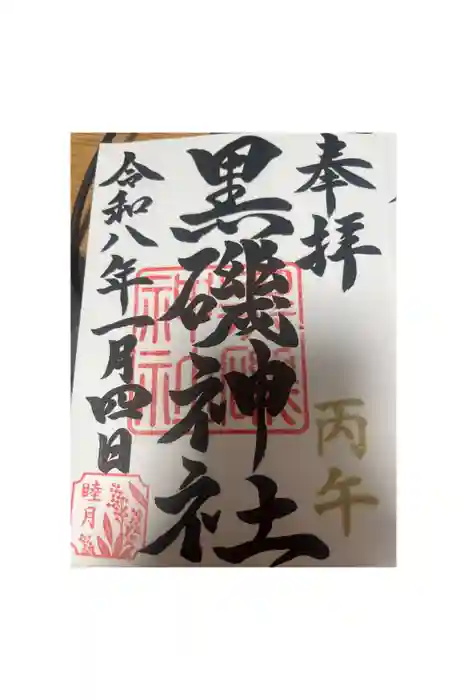 奉拝
丙午
黒磯神社
令和八年一月四日
睦月